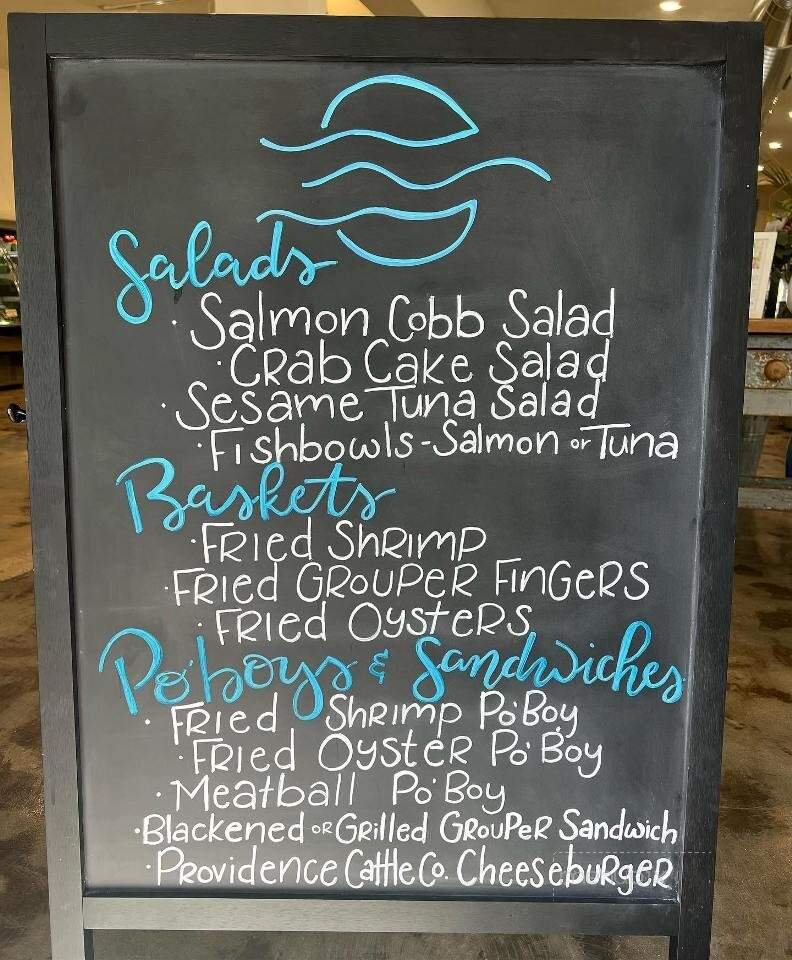 Salads
· Salmon Cobb Salad
· Crab Cake Salad
· Sesame Tuna Salad
· Fishbowls - Salmon or Tuna
Baskets
· Fried Shrimp
· Fried Grouper Fingers
· Fried Oysters
Po'boys & Sandwiches
· Fried Shrimp Po'Boy
· Fried Oyster Po'Boy
· Meatball Po'Boy
· Blackened or Grilled Grouper Sandwich
· Providence Cattle Co. Cheeseburger